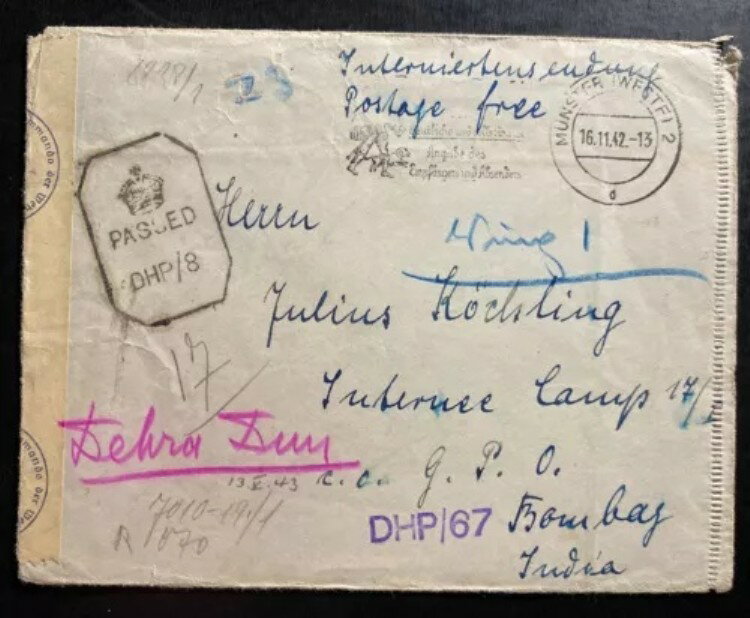 Interniertensendung
Postage free
MÜNSTER (WESTF) 2
16.11.42.-13
d
Angabe des
Empfängers und Absenders
PASSED
DHP/8
Herrn
Wing 1
Julius Köchling
17
Internee Camp 17/
Dehra Dun
13 V. 43 c. o. G. P. O.
DHP/67 Bombay
India